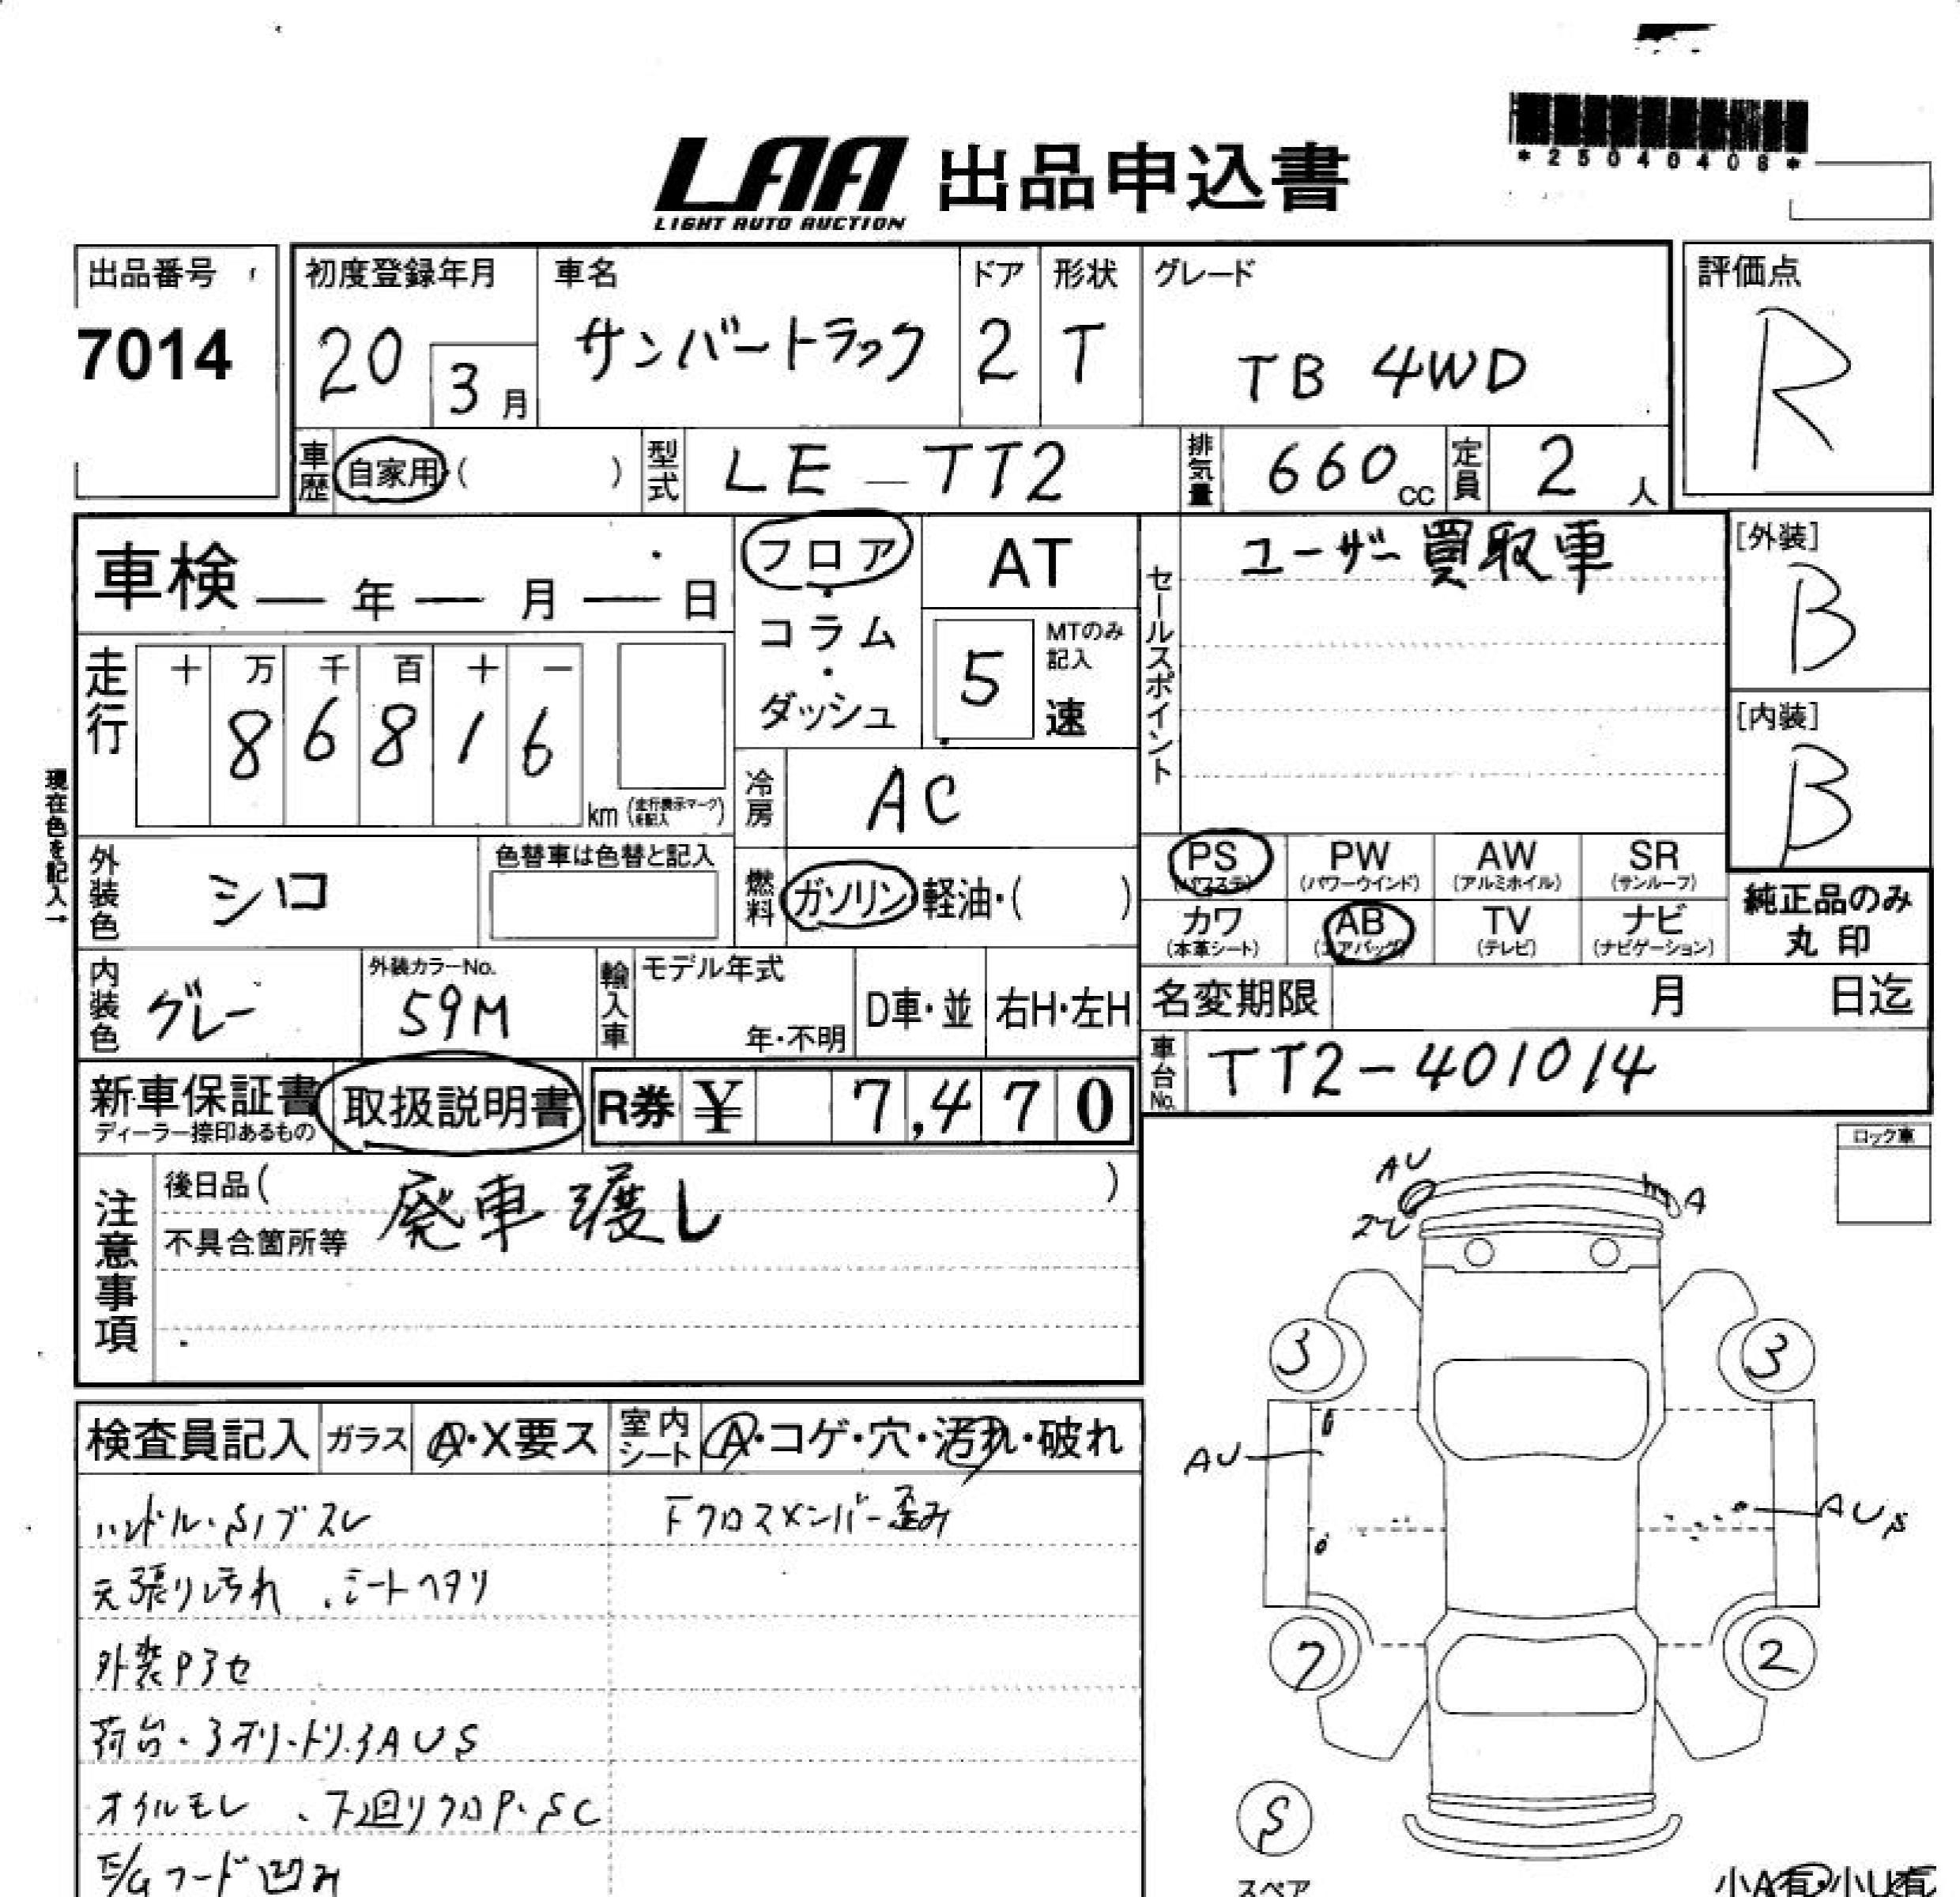 *25040408*
LAA 出品申込書
LIGHT AUTO AUCTION
出品番号
7014
初度登録年月
20 3月
車名
サンバートラック
ドア
2
形状
T
グレード
TB 4WD
評価点
R
車歴 自家用・( )
型式 LE-TT2
排気量 660cc
定員 2人
車検 ― 年 ― 月 ― 日
フロア・コラム・ダッシュ
AT
5
MTのみ記入
速
セールスポイント
ユーザー買取車
[外装]
B
[内装]
B
走行
十 万 千 百 十 一
8 6 8 1 6
km (走行表示マークを記入)
現在色を記入→
冷房 AC
外装色 シロ
色替車は色替と記入
燃料 ガソリン・軽油・( )
PS (パワステ)
PW (パワーウインド)
AW (アルミホイル)
SR (サンルーフ)
カワ (本革シート)
AB (エアバッグ)
TV (テレビ)
ナビ (ナビゲーション)
純正品のみ
丸印
内装色 グレー
外装カラーNo.
59M
輸入車
モデル年式
年・不明
D車・並
右H・左H
名変期限 月 日迄
車台No. TT2-401014
新車保証書
ディーラー捺印あるもの
取扱説明書
R券 ¥ 7,470
注意事項
後日品( )
不具合箇所等
廃車渡し
ロック車
AU
A
3
3
AU
AUS
2
S
スペア
小A有・小U有
検査員記入
ガラス
A・X要ス
室内シート
A・コゲ・穴・汚れ・破れ
ハンドル・S/ブスレ
Fクロスメンバー歪み
天張り汚れ . シートヘタリ
外装Pヤセ
荷台・3オリ・トリイAUS
オイルモレ . 下回りクロP・SC
E/Gフード凹み